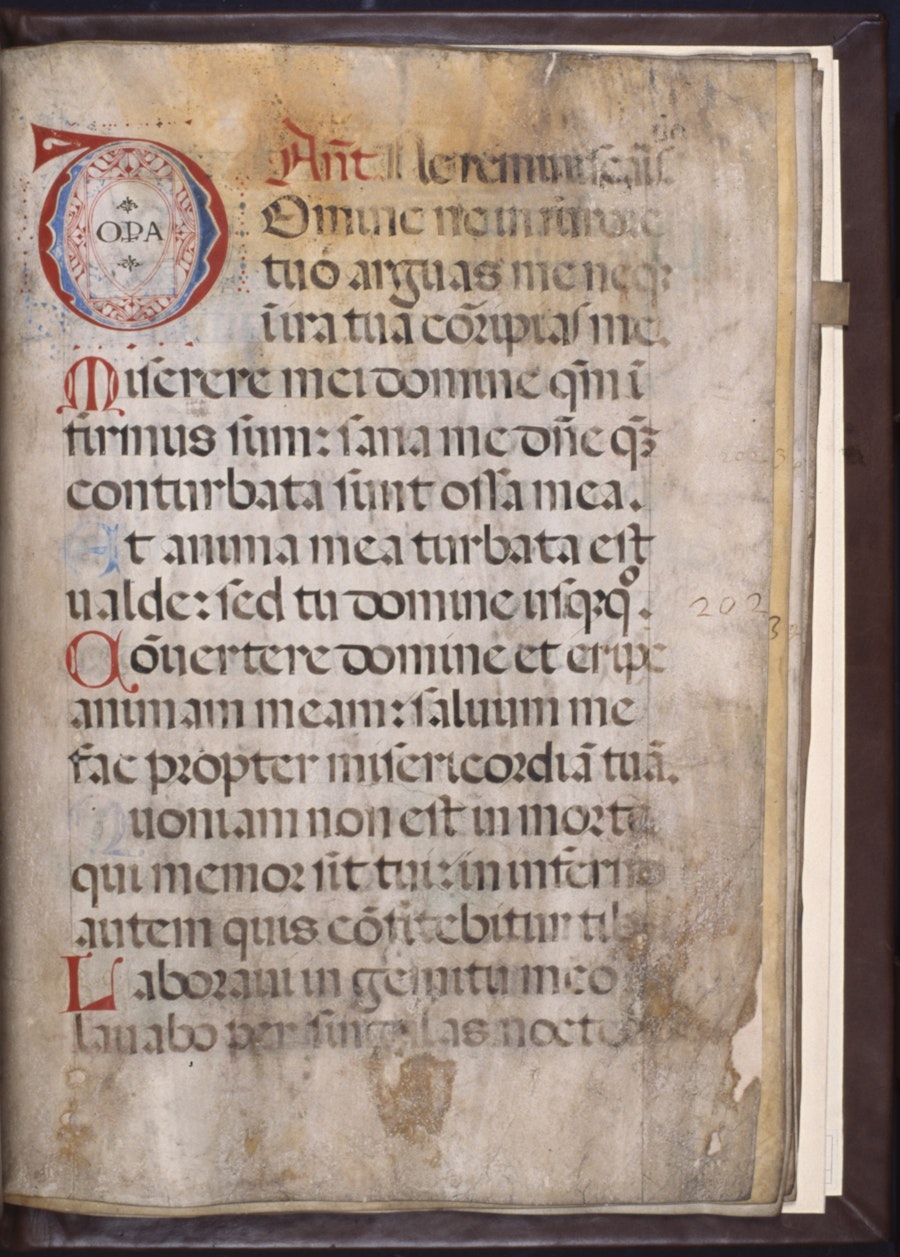 Añt Ne reminiscaris
OPA
Omine ne in furore
tuo arguas me neqꝫ
ĩ ira tua cõripias me.
Miserere mei domine qm̃ ĩ
firmus sum: sana me dñe qꝫ
conturbata sunt ossa mea.
Et anima mea turbata est
ualde: sed tu domine usqꝫqº.
Cõuertere domine et eripe
animam meam: saluum me
fac propter misericordiã tuã.
Quoniam non est in morte
qui memor sit tui: in inferno
autem quis cõfitebitur tibi
Laboraui in gemitu meo
lauabo per singulas nocte
202